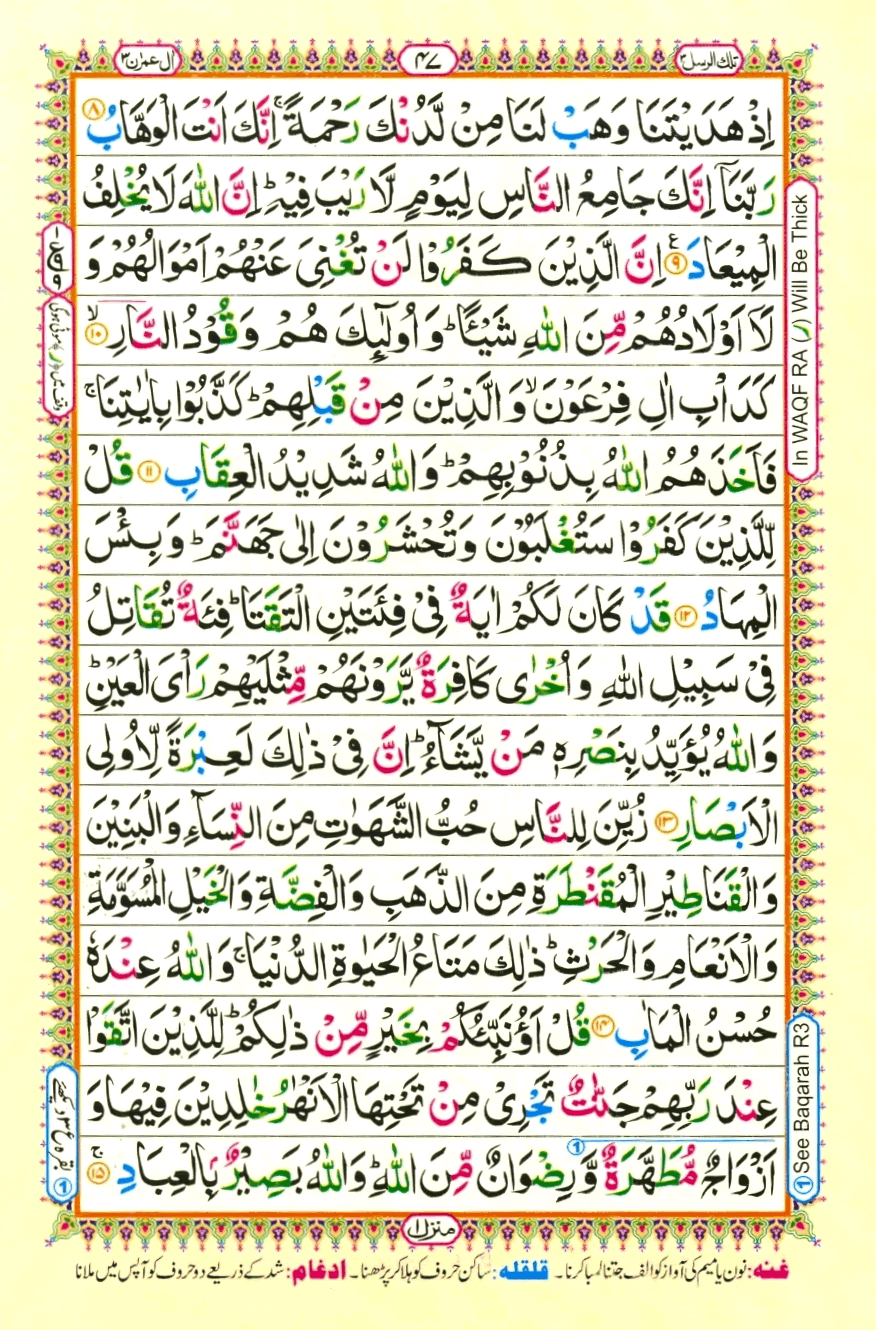 تلك الرسل ٣
٤٧
اٰل عمرٰن ٣
اِذْ هَدَيْتَنَا وَهَبْ لَنَا مِنْ لَّدُنْكَ رَحْمَةً ۚ اِنَّكَ اَنْتَ الْوَهَّابُ ۝٨
رَبَّنَاۤ اِنَّكَ جَامِعُ النَّاسِ لِيَوْمٍ لَّا رَيْبَ فِيْهِ ؕ اِنَّ اللّٰهَ لَا يُخْلِفُ
الْمِيْعَادَ ۝٩ ع اِنَّ الَّذِيْنَ كَفَرُوْا لَنْ تُغْنِىَ عَنْهُمْ اَمْوَالُهُمْ وَ
لَاۤ اَوْلَادُهُمْ مِّنَ اللّٰهِ شَيْـًٔا ؕ وَ اُولٰٓئِكَ هُمْ وَقُوْدُ النَّارِ ۝١٠ۙ
كَدَاْبِ اٰلِ فِرْعَوْنَ ۙ وَ الَّذِيْنَ مِنْ قَبْلِهِمْ ؕ كَذَّبُوْا بِاٰيٰتِنَا ۚ
فَاَخَذَهُمُ اللّٰهُ بِذُنُوْبِهِمْ ؕ وَ اللّٰهُ شَدِيْدُ الْعِقَابِ ۝١١ قُلْ
لِّلَّذِيْنَ كَفَرُوْا سَتُغْلَبُوْنَ وَ تُحْشَرُوْنَ اِلٰى جَهَنَّمَ ؕ وَ بِئْسَ
الْمِهَادُ ۝١٢ قَدْ كَانَ لَكُمْ اٰيَةٌ فِىْ فِئَتَيْنِ الْتَقَتَا ؕ فِئَةٌ تُقَاتِلُ
فِىْ سَبِيْلِ اللّٰهِ وَ اُخْرٰى كَافِرَةٌ يَّرَوْنَهُمْ مِّثْلَيْهِمْ رَاْىَ الْعَيْنِ ؕ
وَ اللّٰهُ يُؤَيِّدُ بِنَصْرِهٖ مَنْ يَّشَآءُ ؕ اِنَّ فِىْ ذٰلِكَ لَعِبْرَةً لِّاُولِى
الْاَبْصَارِ ۝١٣ زُيِّنَ لِلنَّاسِ حُبُّ الشَّهَوٰتِ مِنَ النِّسَآءِ وَ الْبَنِيْنَ
وَ الْقَنَاطِيْرِ الْمُقَنْطَرَةِ مِنَ الذَّهَبِ وَ الْفِضَّةِ وَ الْخَيْلِ الْمُسَوَّمَةِ
وَ الْاَنْعَامِ وَ الْحَرْثِ ؕ ذٰلِكَ مَتَاعُ الْحَيٰوةِ الدُّنْيَا ۚ وَ اللّٰهُ عِنْدَهٗ
حُسْنُ الْمَاٰبِ ۝١٤ قُلْ اَؤُنَبِّئُكُمْ بِخَيْرٍ مِّنْ ذٰلِكُمْ ؕ لِلَّذِيْنَ اتَّقَوْا
عِنْدَ رَبِّهِمْ جَنّٰتٌ تَجْرِىْ مِنْ تَحْتِهَا الْاَنْهٰرُ خٰلِدِيْنَ فِيْهَا وَ
اَزْوَاجٌ مُّطَهَّرَةٌ وَّ رِضْوَانٌ مِّنَ اللّٰهِ ؕ وَ اللّٰهُ بَصِيْرٌۢ بِالْعِبَادِ ۝١٥ۚ
In WAQF RA (ر) Will Be Thick
① See Baqarah R3
منزل ۱
غنه: نون یا میم کی آواز کو الف جتنا لمبا کرنا۔ قلقله: ساکن حروف کو ہلا کر پڑھنا۔ ادغام: شد کے ذریعے دو حروف کو آپس میں ملانا